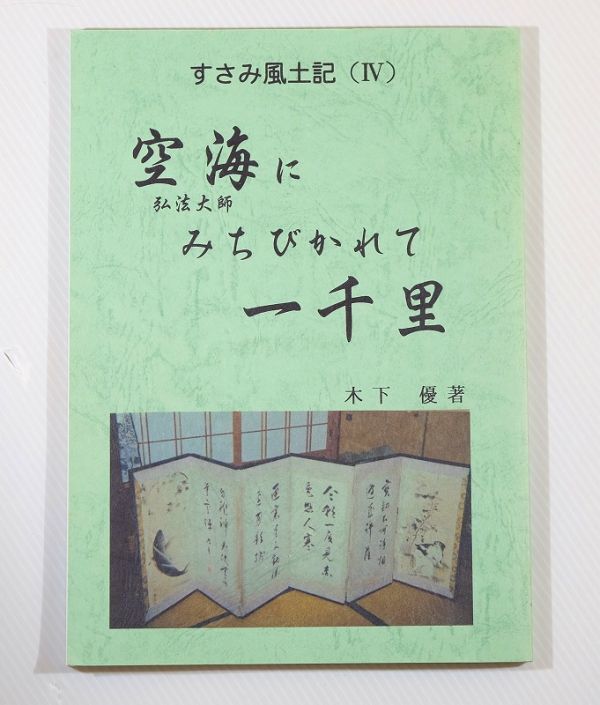 すさみ風土記（Ⅳ）
空海に
弘法大師
みちびかれて
一千里
木下　優著